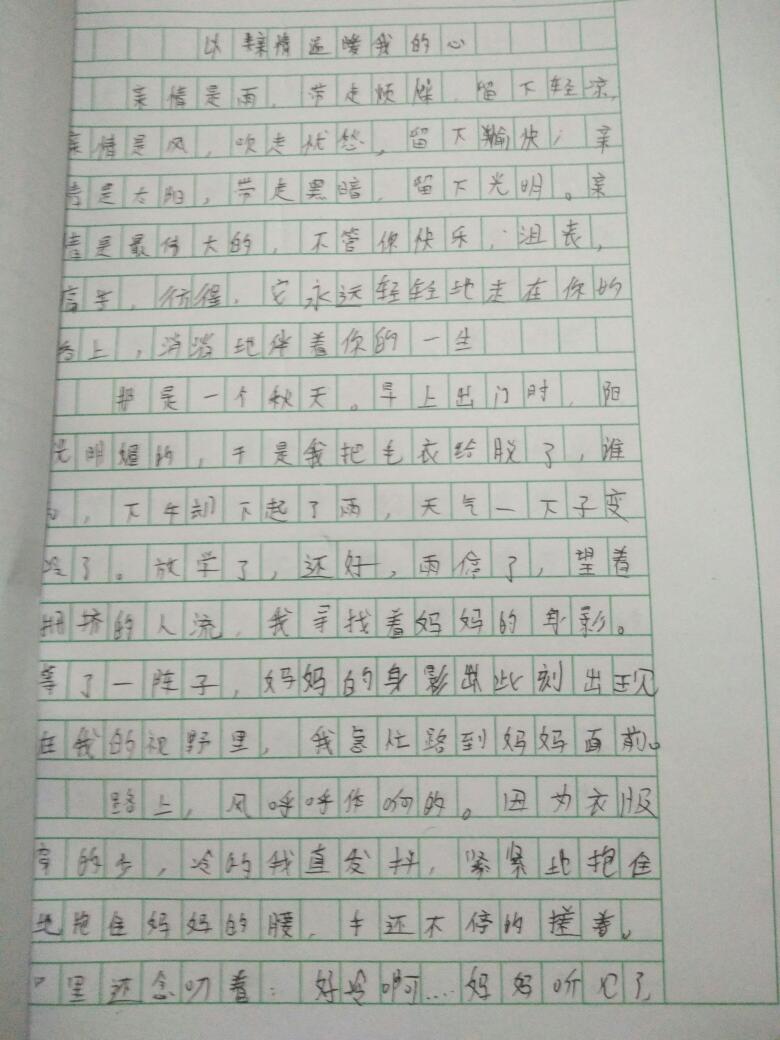 以亲情温暖我的心
亲情是雨，带走烦燥，留下轻凉，
亲情是风，吹走忧愁，留下愉快；亲
情是太阳，带走黑暗，留下光明。亲
情是最伟大的，不管你快乐，沮丧，
它永远轻轻地走在你的
路上，消消地伴着你的一生
那是一个秋天。早上出门时，阳
光明媚的，于是我把毛衣给脱了，谁
知，下午却下起了雨，天气一下子变
冷了。放学了，还好，雨停了，望着
拥挤的人流，我寻找着妈妈的身影。
等了一阵子，妈妈的身影此刻出现
在我的视野里，我急忙跑到妈妈面前。
路上，风呼呼作响的。因为衣服
穿的少，冷的我直发抖，紧紧地抱住
地抱住妈妈的腰，手还不停的搓着。
口里还念叨着：好冷啊....妈妈听见了，